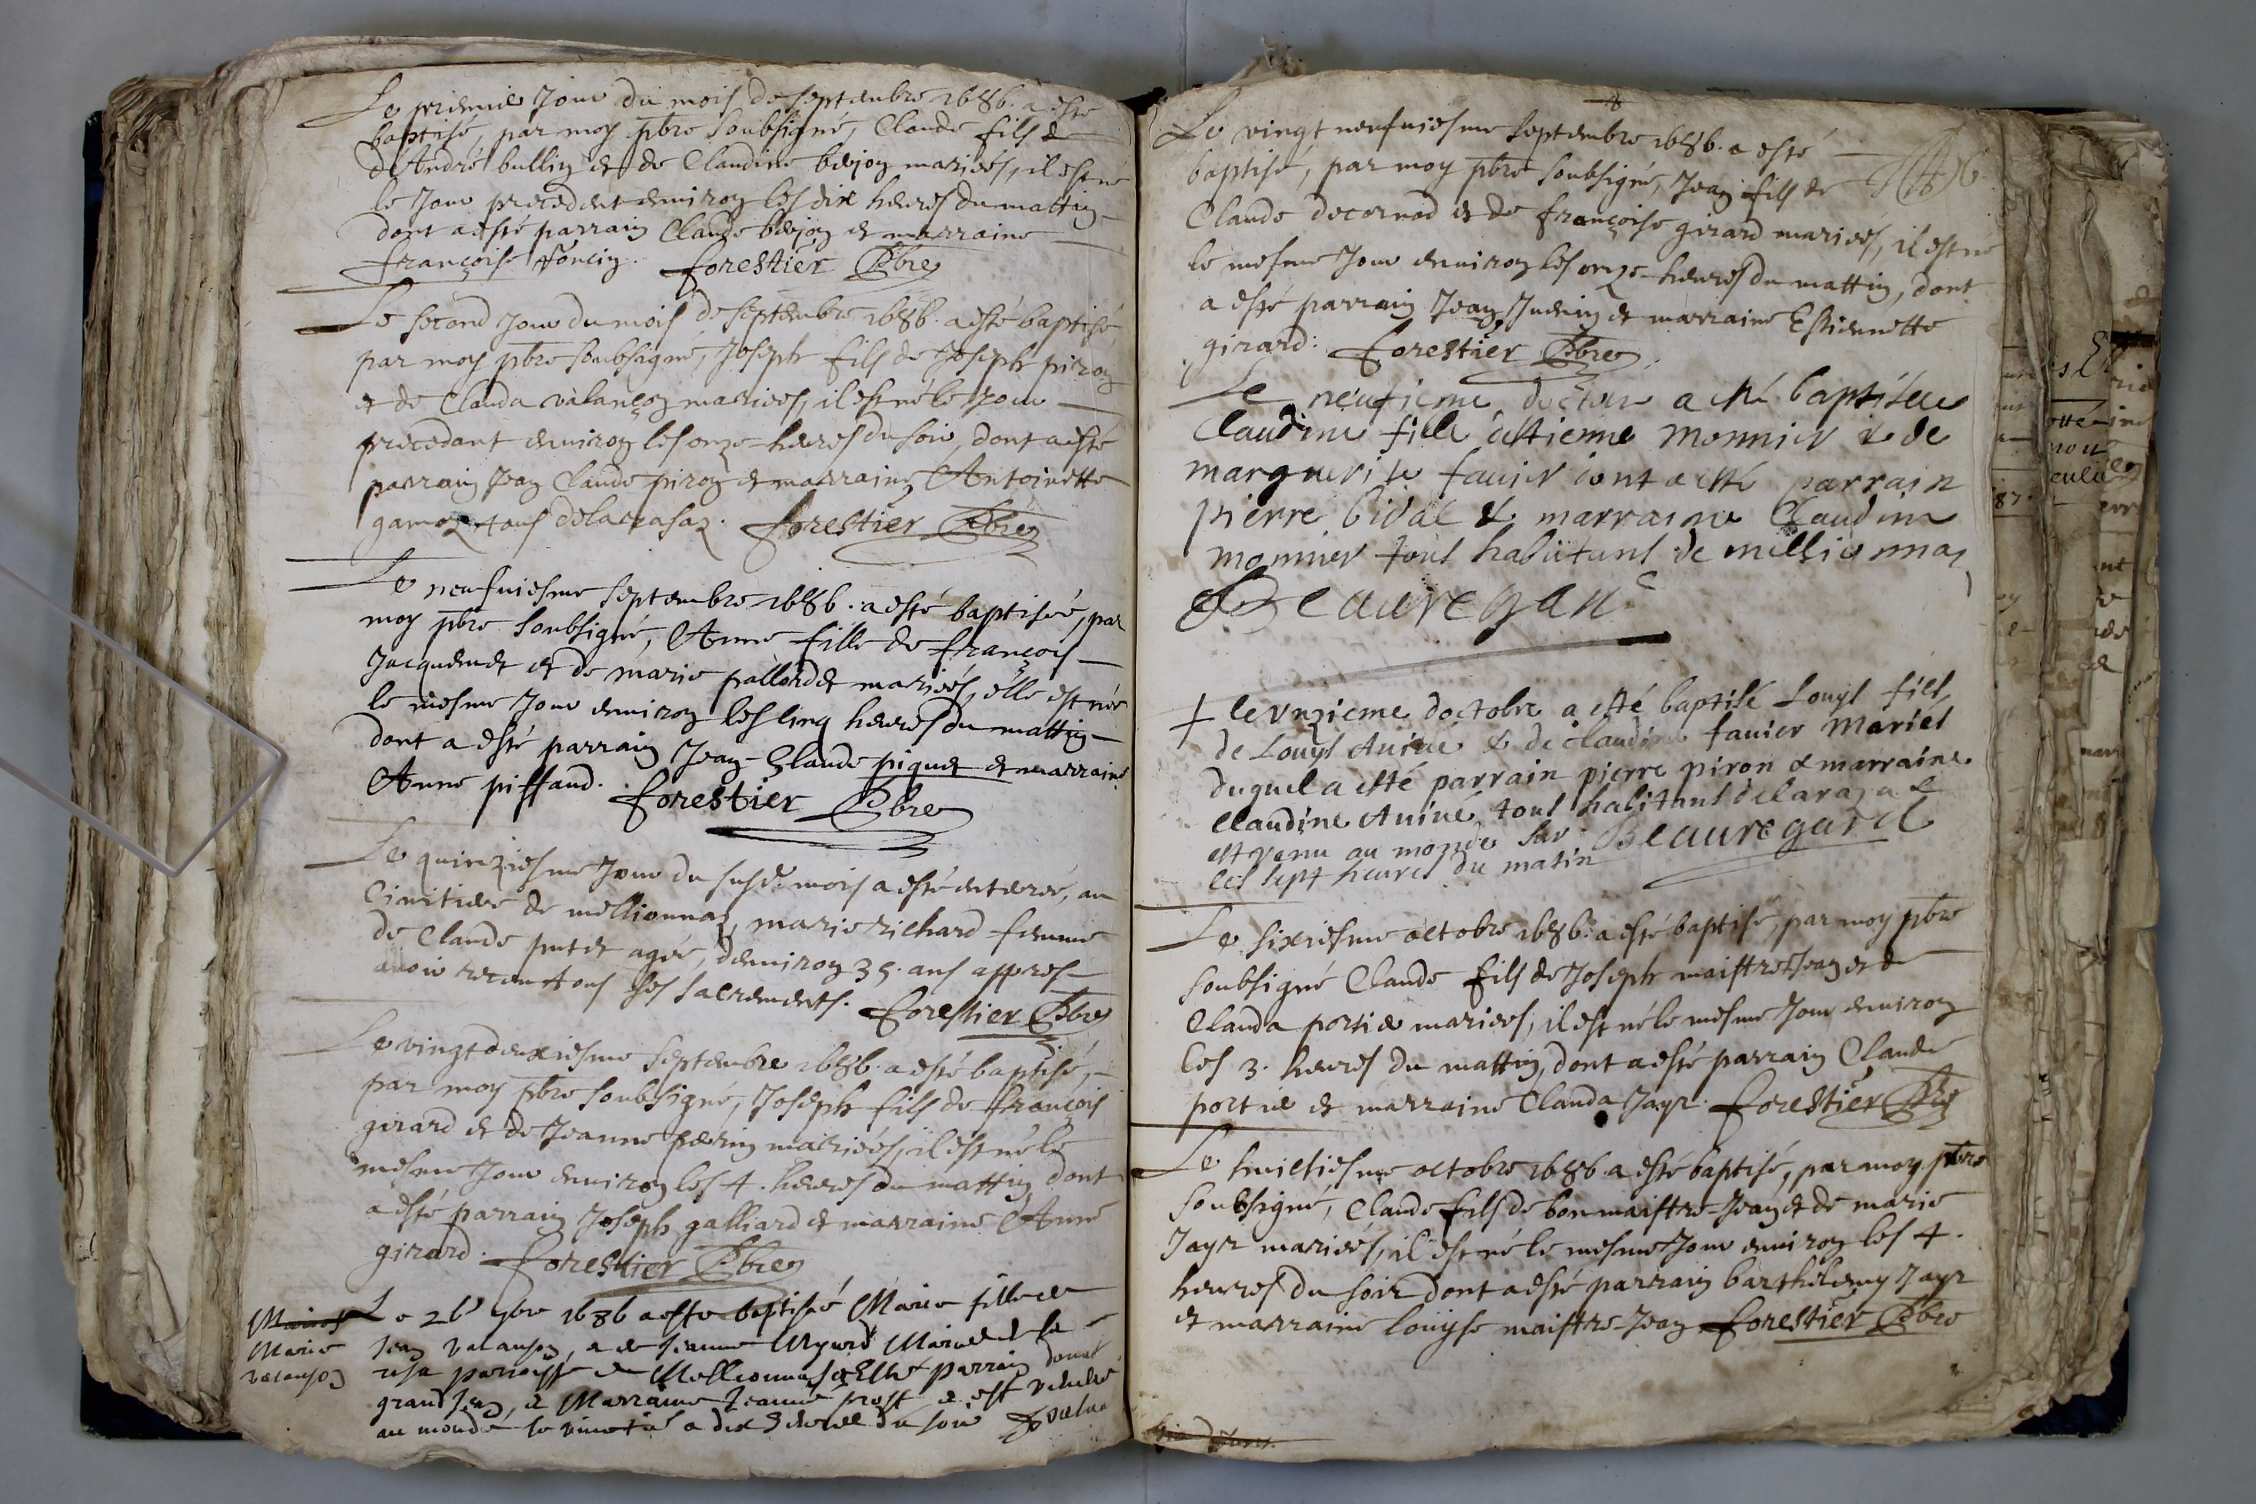 Le premie Jour du mois de septembre 1686. a esté
baptisé, par moy pbre soubsigné, Claude fils de
d'André bullin et de Claudine bejon mariés, il est né
le Jour precedent environ les dix heures du mattin
dont a esté parrain Claude bejon et marraine
françoise foncin. forestier Pbre
Le second Jour du mois de septembre 1686. a esté baptisé,
par moy pbre soubsigné, Joseph fils de Joseph piron
et de Clauda valançon mariees, il est né le Jour
precedant environ les onze heures du soir, dont a esté
parrain Jean Claude piron et marraine Antoinette
tous delarasaz. forestier Pbre
Le neufuiesme septembre 1686. a esté baptiseé, par
moy pbre soubsigné, Anne fille de françois
Jacquemet et de marie palliordet marieés, elle est née
le mesme Jour environ les cinq heures du mattin
dont a esté parrain Jean-Claude piquet et marraine
Anne piffaud. forestier Pbre
Le quinziesme Jour du susd. mois a esté enterreé, au
Cimitiere de mellionnaz, marie richard femme
de Claude putet ageé, d'environ 35. ans appres
avoir receu tous ses sacrements. forestier Pbre
Le vingtdeuxiesme septembre 1686. a esté baptisé,
par moy pbre soubsigné, Joseph fils de françois
girard et de Jeanne perrin marieés, il est né le
mesme Jour environ les 4. heures du mattin dont
a esté parrain Joseph galliard et marraine Anne
girard. forestier Pbre
Marie
valanson
Le 26 7bre 1686 a esté baptisé Marie fille de
Jean valanson, et de Jeanne Mariee de la
rasa parroisse de Mellionna a Esté parrain
grand Jean, et Marraine Jeanne prost et est venue
au monde le a dix heures du soir
Le vingt neufuiesme septembre 1686. a esté
baptisé, par moy pbre soubsigné, Jean fils de
Claude decornod et de françoise girard marieés, il est né
le mesme Jour environ les onze heures du mattin, dont
a esté parrain Jean Juenin et marraine Estiennette
girard. forestier Pbre
Le neufieme doctobr a esté baptiseé
Claudine fille destienne monnier & de
marguerite favier dont a esté parrain
pierre bidal & marraine Claudine
monnier tous habitans de mellionnas
Beauregard
+ le vnzieme doctobre a esté baptisé Louys fils
de Louys Aniné & de claudine favier Mariés
duquel a esté parrain pierre piron & marraine
Claudine Aniné tous habitans delaraza &
est venu au monde sur Beauregard
les sept heures du matin
Le sixiesme octobre 1686. a esté baptisé, par moy pbre
soubsigné Claude fils de Joseph maistre Jean et de
Clauda portie marieés, il est né le mesme Jour environ
les 3. heures du mattin, dont a esté parrain Claude
portie et marraine Clauda Jayr. forestier Pbre
Le huictiesme octobre 1686 a esté baptisé, par moy pbre
soubsigné, Claude fils de bon maistre-Jean et de marie
Jayr marieés, il est né le mesme Jour environ les 4.
heures du soir dont a esté parrain barthelemy Jayr
et marraine louyse maistre-Jean forestier Pbre